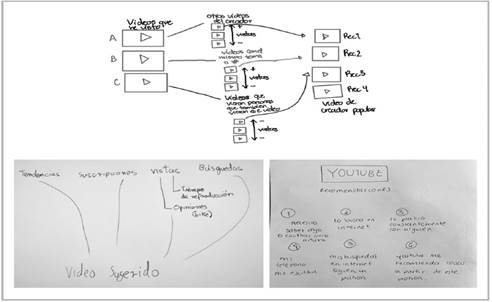 Videos que
he visto
A
B
C
Otros videos
del creador
+
vistas
-
Videos con el
mismo tema
+
vistas
-
Videos que
vieron personas
que también
vieron ese video
-
vistas
-
Rec1
Rec2
Rec3
Rec4
Video de
creador popular
Tendencias
Suscripciones
Vistas
Búsquedas
Tiempo
de reproducción
Opiniones
(like)
Video Sugerido
YOUTUBE
Recomendaciones
1
2
3
Necesito
saber algo
lo busco en
internet
lo platico
constantemente
con alguien.
4
5
6
mi
teléfono
me escucha
mis búsquedas
en internet
siguen un
patrón.
youtube me
recomienda
a partir de este
patrón.